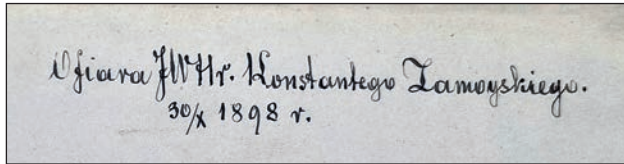 Ofiara JWHr. Konstantego Zamoyskiego.
30/X 1898 r.